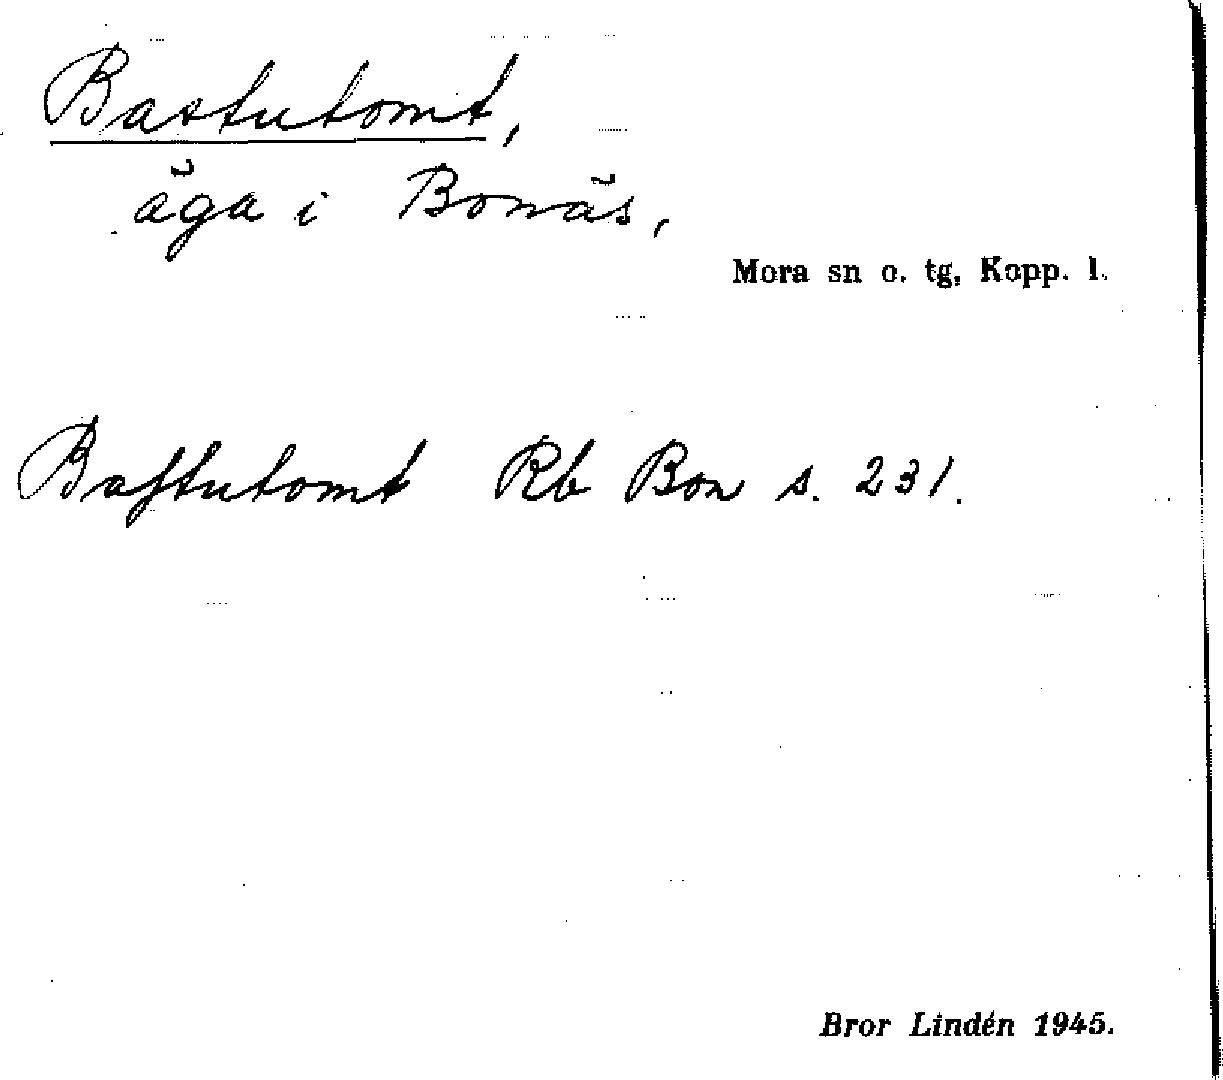 Bastutomt,
äga i Bonäs,
Mora sn o. tg, Kopp. l.
Baſtutomt Rb Bon s. 231.
Bror Lindén 1945.